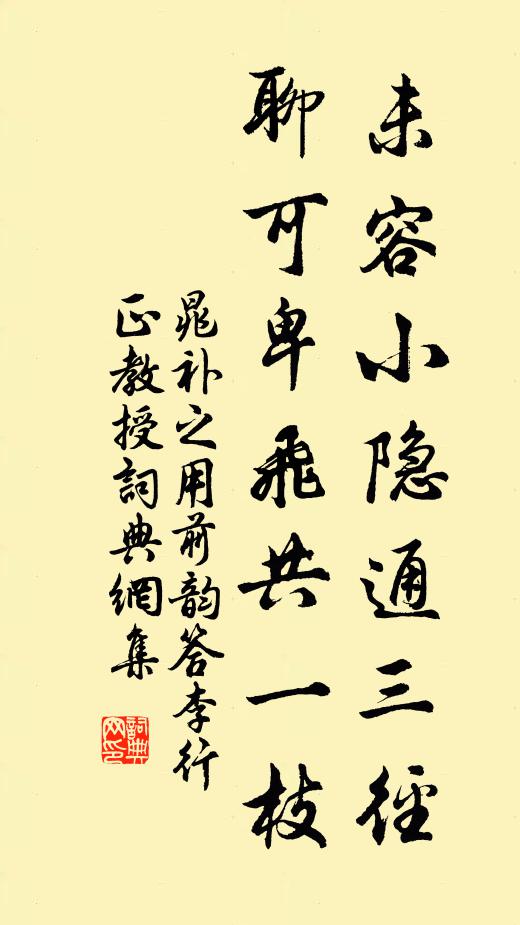 未容小隐通三径
聊可卑飛共一枝
晁补之用前韵答李行
正教授詞典網集
詞典网印